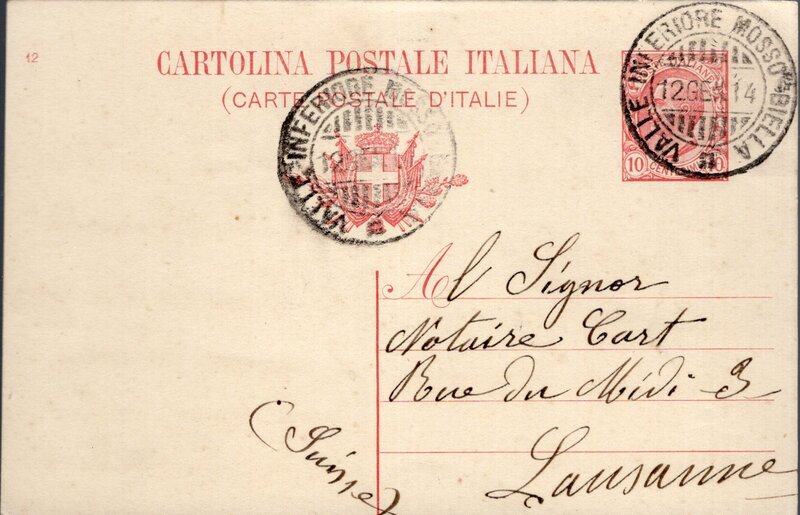 12
CARTOLINA POSTALE ITALIANA
(CARTE POSTALE D'ITALIE)
VALLE INFERIORE MOSSO BIELLA
12 GEN 14
10 CENT
VALLE INFERIORE MOSSO
Al Signor
Notaire Cart
Rue du Midi 3
Lausanne
(Suisse)